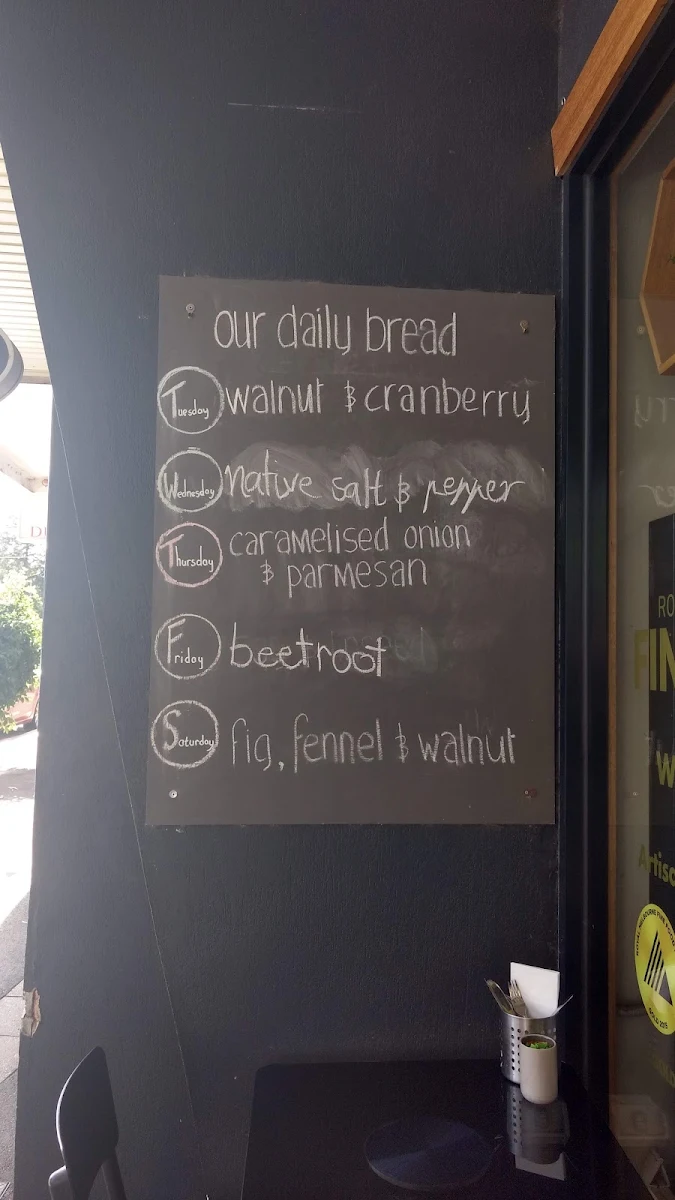 our daily bread
Tuesday walnut & cranberry
Wednesday native salt & pepper
Thursday caramelised onion
& parmesan
Friday beetroot
Saturday fig, fennel & walnut
RO
FIN
W
Artisa